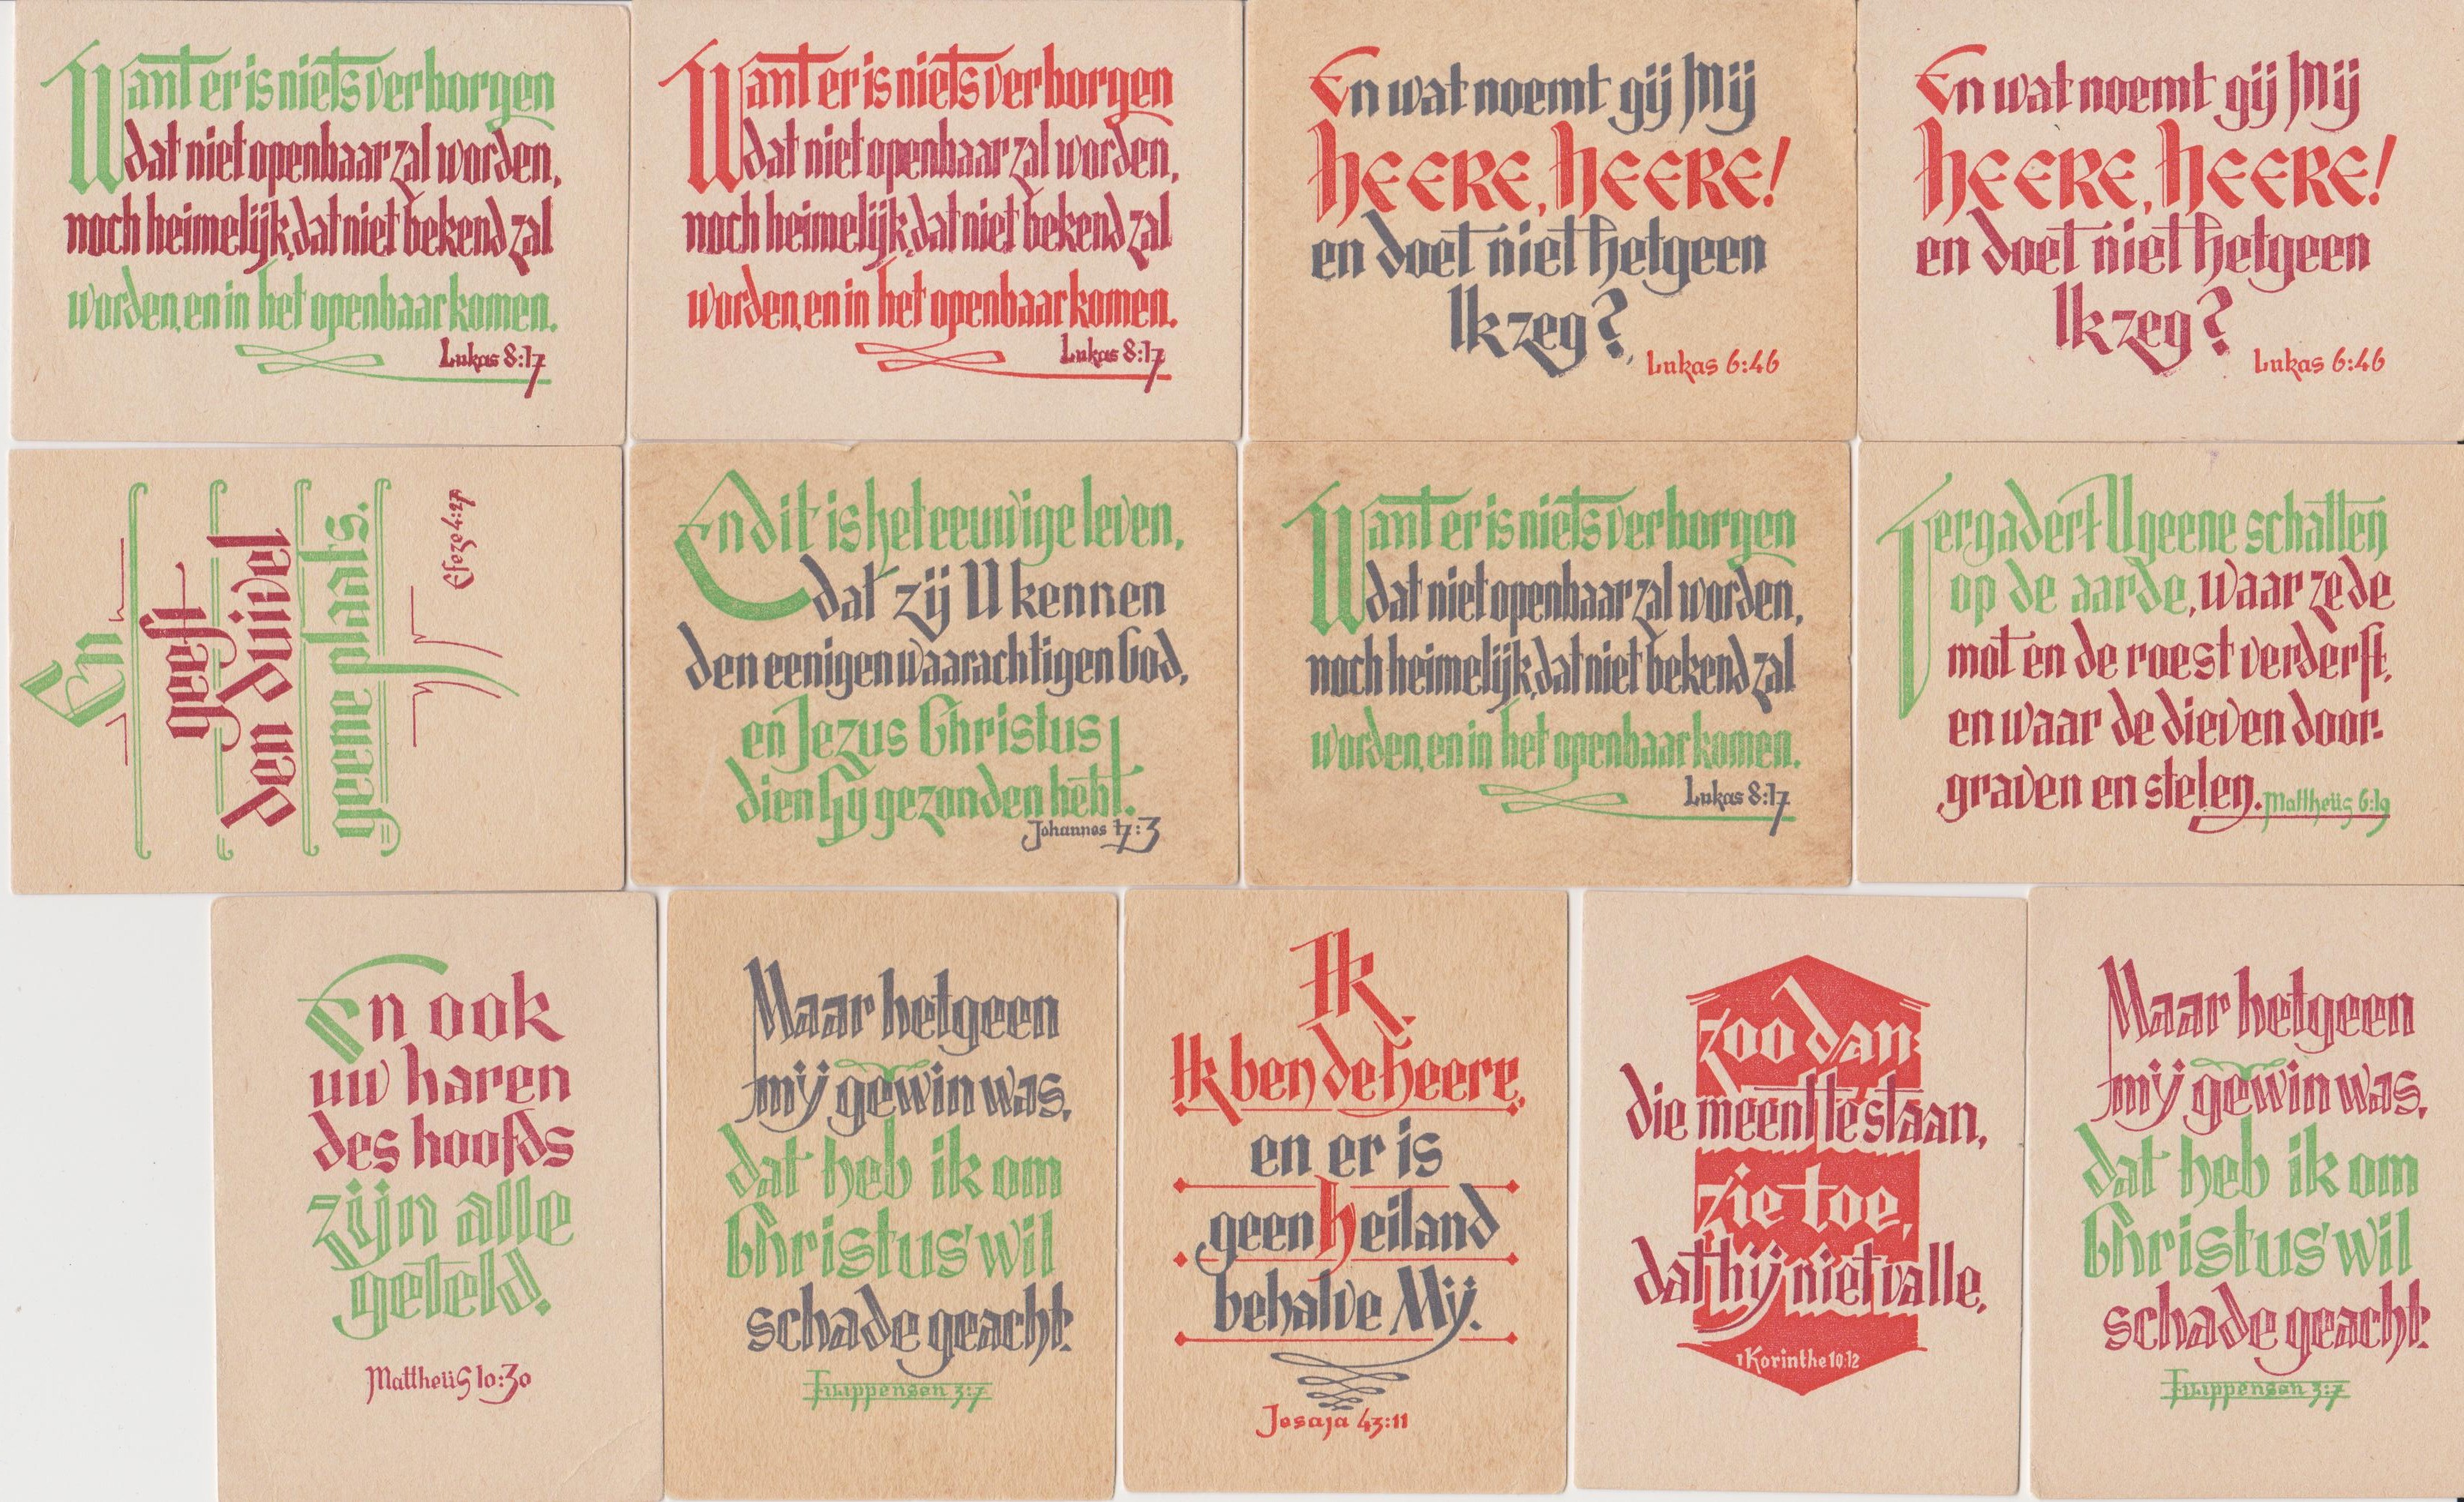 Want er is niets verborgen
dat niet openbaar zal worden,
noch heimelijk, dat niet bekend zal
worden, en in het openbaar komen.
Lukas 8:17
Want er is niets verborgen
dat niet openbaar zal worden,
noch heimelijk, dat niet bekend zal
worden, en in het openbaar komen.
Lukas 8:17
En wat noemt gij Mij
HEERE, HEERE!
en doet niet hetgeen
Ik zeg?
Lukas 6:46
En wat noemt gij Mij
HEERE, HEERE!
en doet niet hetgeen
Ik zeg?
Lukas 6:46
En
geeft
den duivel
geene plaats.
Efeze 4:27
En dit is het eeuwige leven,
dat zij U kennen
den eenigen waarachtigen God,
en Jezus Christus
dien Gy gezonden hebt.
Johannes 17:3
Want er is niets verborgen
dat niet openbaar zal worden,
noch heimelijk, dat niet bekend zal
worden, en in het openbaar komen.
Lukas 8:17
Vergadert U geene schatten
op de aarde, waar ze de
mot en de roest verderft,
en waar de dieven door-
graven en stelen. Mattheüs 6:19
En ook
uw haren
des hoofds
zijn alle
geteld.
Mattheüs 10:30
Maar hetgeen
mij gewin was,
dat heb ik om
Christus' wil
schade geacht.
Filippensen 3:7
Ik,
Ik ben de Heere,
en er is
geen Heiland
behalve Mij.
Jesaja 43:11
Zoo dan:
die meent te staan,
zie toe,
dat hij niet valle.
1 Korinthe 10:12
Maar hetgeen
mij gewin was,
dat heb ik om
Christus' wil
schade geacht.
Filippensen 3:7